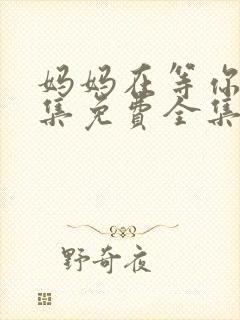 妈妈在等你
集免费全集
野奇夜